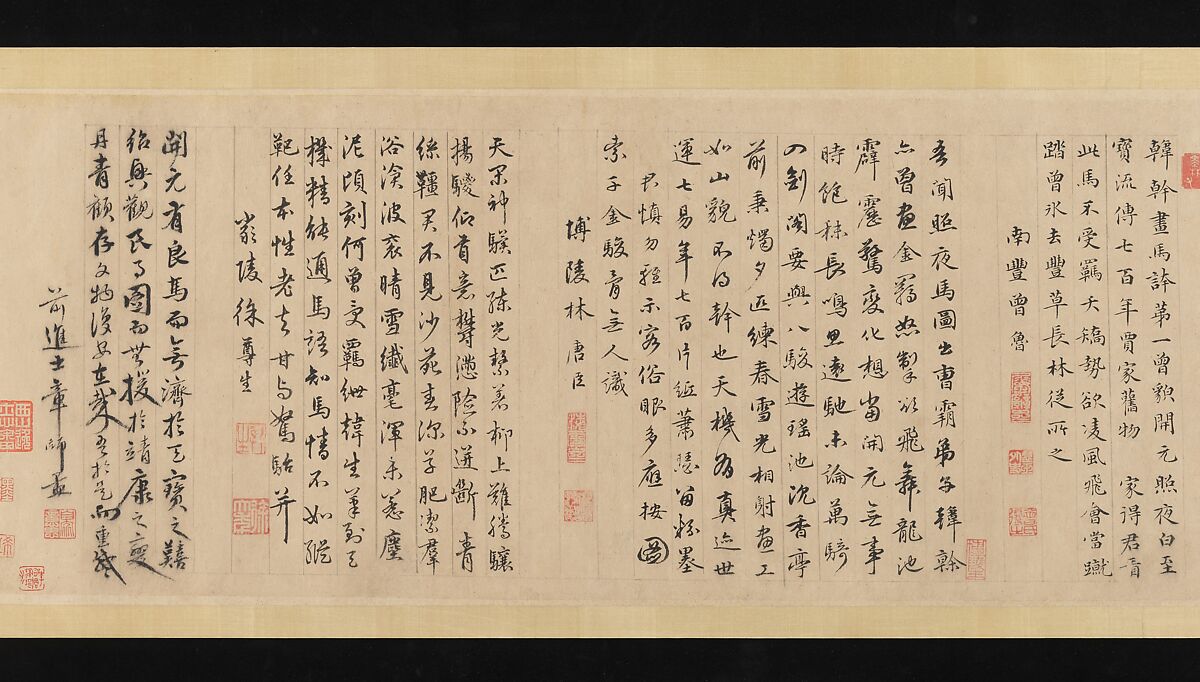 韓幹畫馬誇第一曾貌開元照夜白至
寶流傳七百年賈家舊物家得君
此馬不受羈大矯勢欲凌風飛會當蹴
踏曾氷去豐草長林從所之
南豐曾魯
吾聞照夜馬圖出曹霸弟與韓幹
亦曾畫金羈怒掣欲飛舞龍池
霹靂驚變化想當開元無事
時飽秣長鳴思遠馳未論萬騎
入劍閣要與八駿遊瑤池沈香亭
前秉燭夕匹練春雪光相射畫工
如山貌不得幹也天機有真迹世
運七易年七百片紙蕭騷留粉墨
君慎勿輕示客俗眼多應按圖
索千金駿骨無人識
博陵林唐臣
天閑神駿匹練光繫著柳上難騰驤
揚騣仰首意鬱懣險不迸斷青
絲韁君不見沙苑春深草肥潔群
浴滄波衮晴雪纖毫渾不惹塵
泥頃刻何曾受羈紲韓生筆到天
機精能通馬語知馬情不如縱
靶任本性老去甘與駑駘并
嚴陵徐尊生
開元有良馬而無濟於天寶之囏
紹興觀民之圖而無援於靖康之變
丹青顧存文物復安在哉吾於是而重感
前進士章